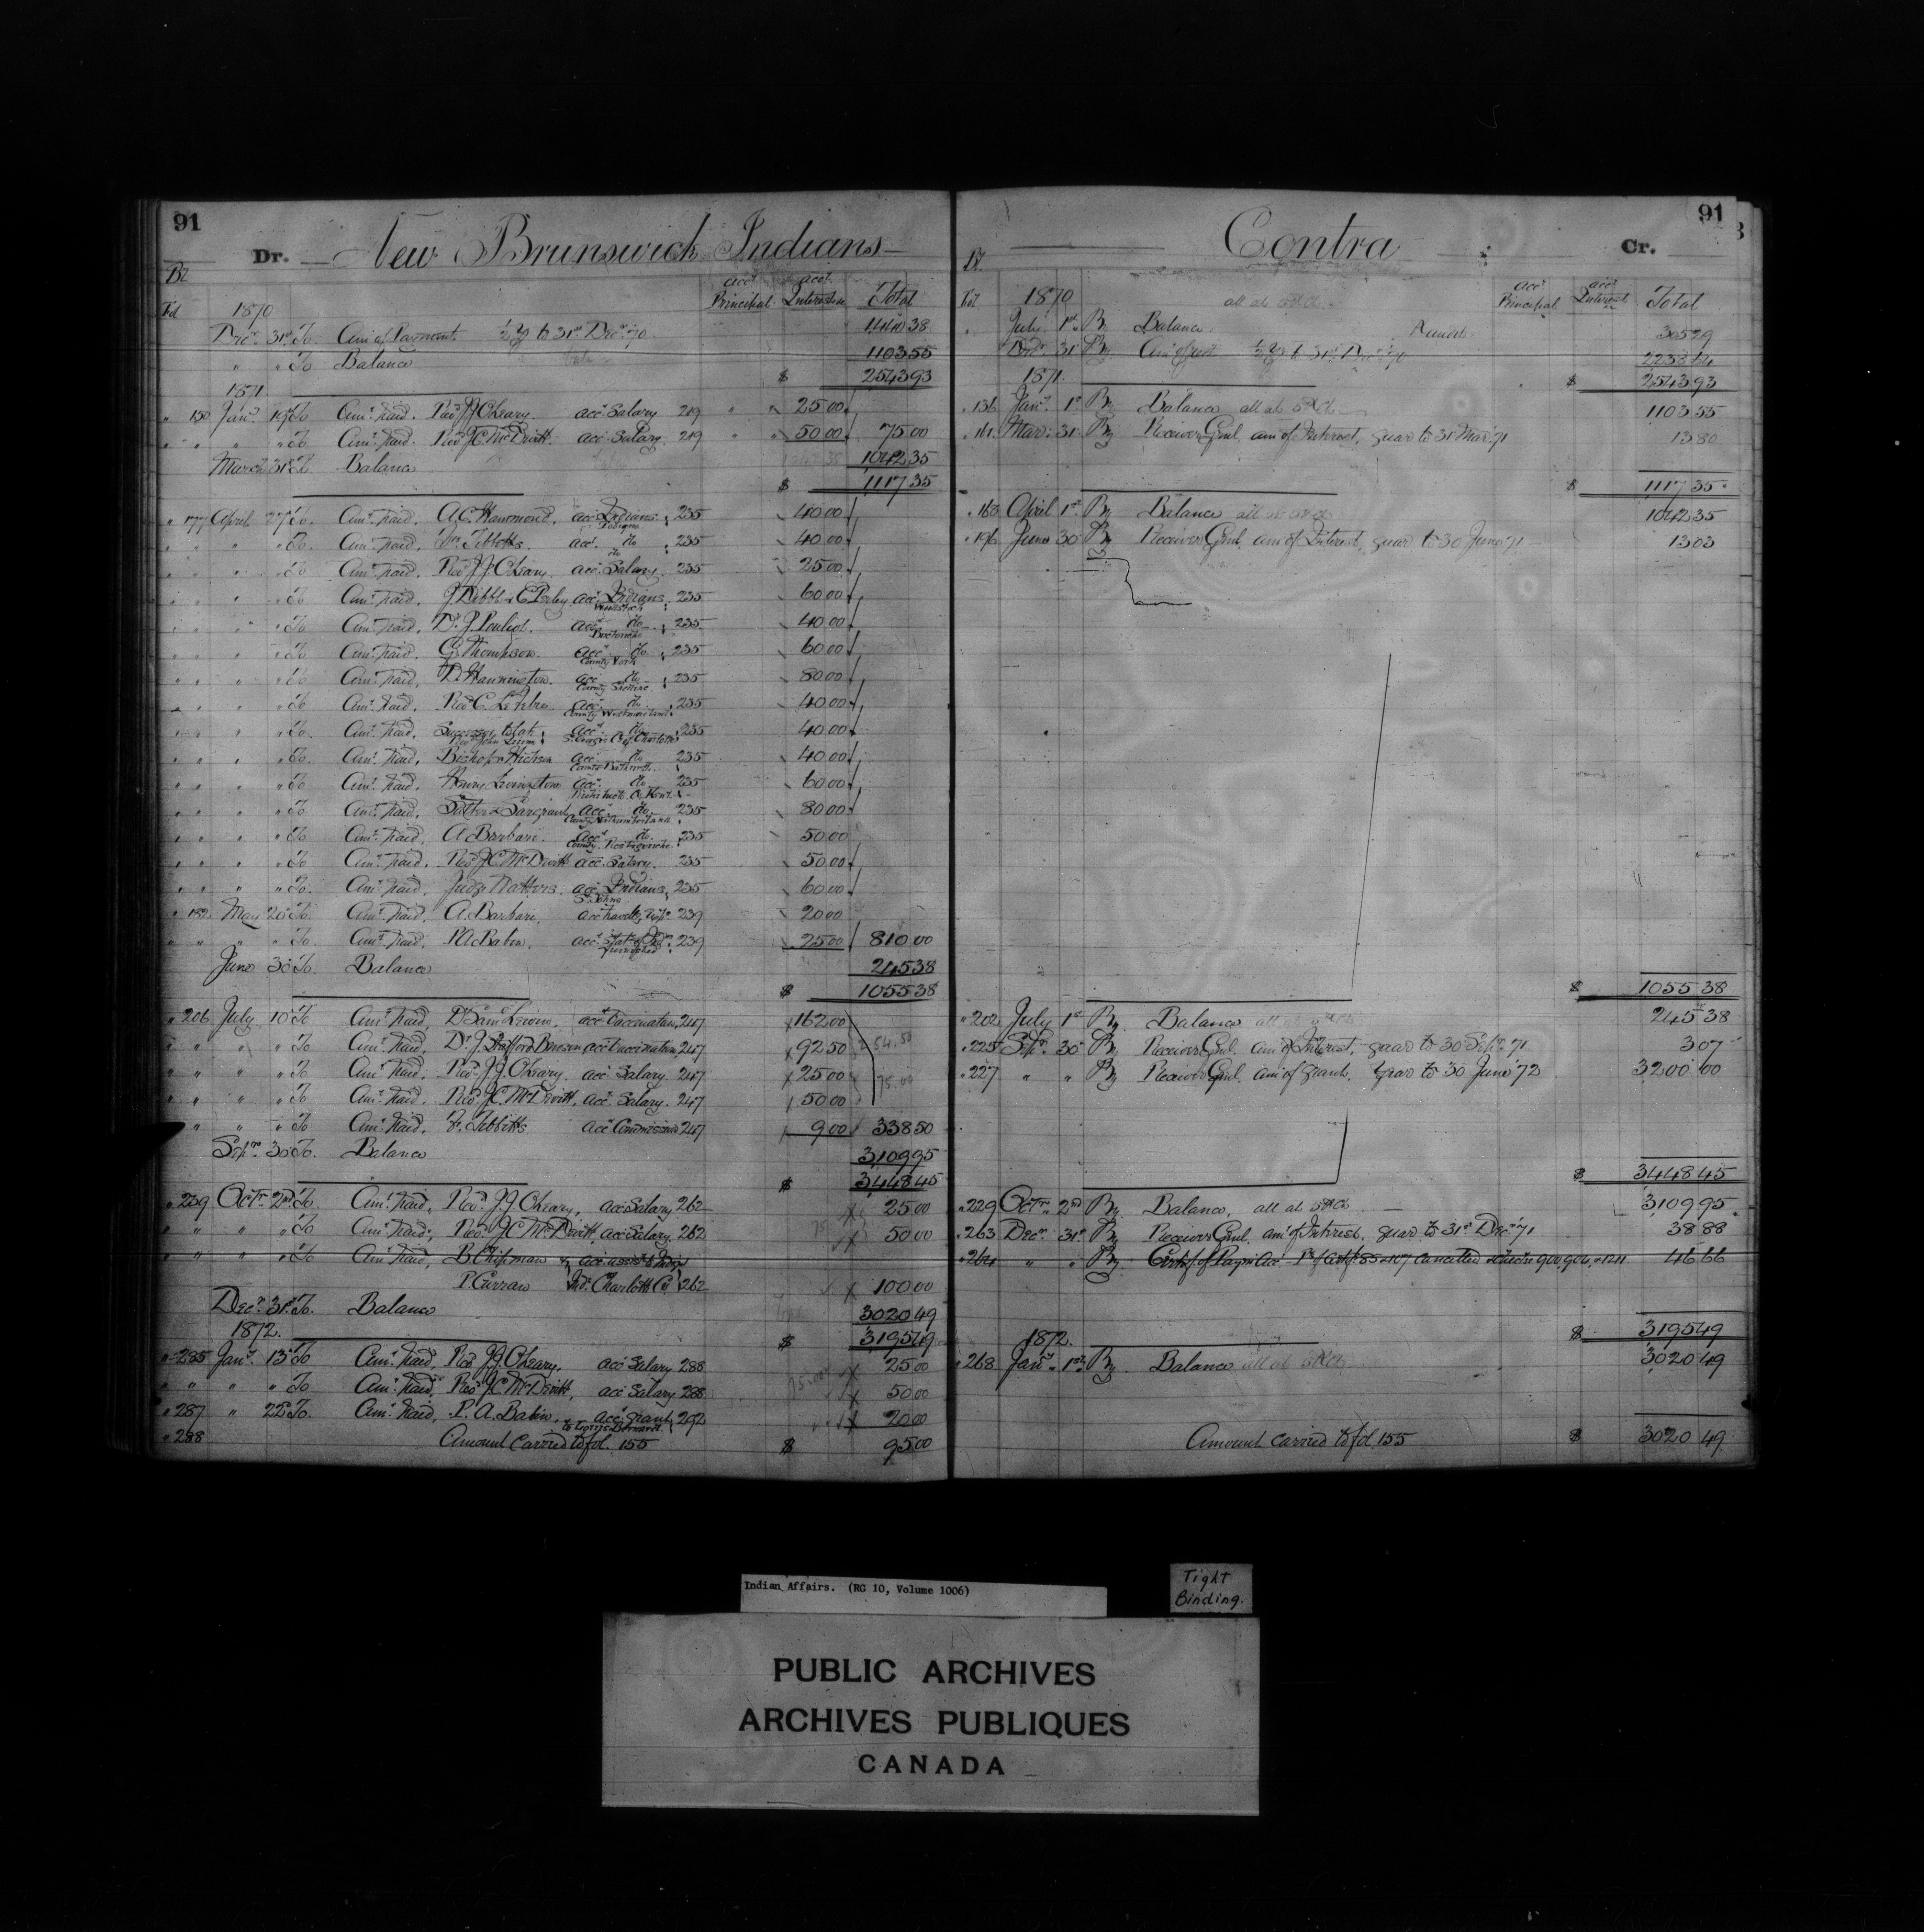 91
Dr. New Brunswick Indians
Fol 1870 acct Principal acct Interest Total
Decr 31st To Amt of Payment ½ y to 31st Decr 70 1440 38
" " To Balance 1103 55
$ 2543 93
1871
" 150 Jany 19th To Amt Paid. Revd J.J. O'Leary. acct Salary 219 25 00
" " " " To Amt Paid. Revd J.C. McDevitt. acct Salary 219 50 00 75 00
March 31st To Balance 1042 35
$ 1117 35
" 177 April 27th To Amt Paid, A.C. Hammond, acct Indians Tobique 235 40 00
" " " " To Amt Paid, Tibbitts. acct do 235 40 00
" " " " To Amt Paid, Revd J.J. O'Leary acct Salary. 235 25 00
" " " " To Amt Paid, J. Dibble & C Perley acct Indians Woodstock 235 60 00
" " " " To Amt Paid, Dr J. Pouliot. acct do 235 40 00
" " " " To Amt Paid, G. Thompson. acct do County York 235 60 00
" " " " To Amt Paid, D. Hannington. acct do 235 80 00
" " " " To Amt Paid, Revd C. Lefebvre acct do County Westmoreland 235 40 00
" " " " To Amt Paid, Successor to late acct do 235 40 00
" " " " To Amt Paid, Bishop acct do 235 40 00
" " " " To Amt Paid, Henry Livingston acct do 235 60 00
" " " " To Amt Paid, Salter & Sargeant acct do County Northumberland 235 80 00
" " " " To Amt Paid, A Barbarie. acct do County Restigouche 235 50 00
" " " " To Amt Paid. Revd J.C. McDevitt acct Salary. 235 50 00
" " " " To Amt Paid, Judge Watters. acct Indians, St Johns 235 60 00
" 182 May 20th To Amt Paid, A. Barbarie, acct travellg Exps 239 20 00
" " " " To Amt Paid, P.A. Babin, acct 239 25 00 810 00
June 30 To Balance 245 38
$ 1055 38
" 206 July 10th To Amt Paid, Dr Saml acct Vaccination 247 162 00
" " " " To Amt Paid, Dr J. Stafford Benson acct vaccination 247 92 50 254.50
" " " " To Amt Paid, Revd J.J. O'Leary. acct Salary. 247 25 00 75.00
" " " " To Amt Paid, Revd J.C. McDevitt, acct Salary. 247 50 00
" " " " To Amt Paid, Tibbitts acct Commission 247 9 00 338 50
Septr 30th To. Balance 3109 95
$ 3448 45
" 239 Octr 2nd To Amt Paid, Revd J.J. O'Leary, acct Salary 262 25 00
" " " " To Amt Paid, Revd J.C. McDevitt, acct Salary. 262 50 00
" " " " To Amt Paid, B Chipman &
P. Curran Charlotte Co 262 100 00
Decr 31st To. Balance 3020 49
1872. $ 3195 49
" 285 Jany 13th To Amt Paid, Revd J.J. O'Leary, acct Salary 288 25 00
" " " " To Amt Paid, Revd J.C. McDevitt, acct Salary 288 50 00
" 287 " 22nd To. Amt Paid, P.A. Babin, acct grant 292 20 00
" 288 Amount carried to fol. 155 $ 95 00
91
Contra Cr.
Fol 1870 acct Principal acct Interest Total
July 1st By Balance 305 79
Decr 31 By Amt of ½ y to 31st Decr 70 2238 14
1871. $ 2543 93
" 136 Jany 1st By Balance all at 5%. 1103 55
" 161 Mar: 31 By Receiver Genl. amt of Interest, quar to 31 Mar 71 13 80
$ 1117 35
" 163 April 1st By Balance all 1042 35
" 196 June 30 By Receiver Genl. amt of Interest, quar to 30 June 71 13 03
$ 1055 38
" 202 July 1st By Balance all at 245 38
" 225 Septr 30 By Receiver Genl. amt of Interest, quar to 30 Septr 71 3 07
" 227 " " By Receiver Genl. amt of grant, year to 30 June 72 3200 00
$ 3448 45
" 229 Octr 2nd By Balance, all at 5% 3109 95
" 263 Decr 31st By Receiver Genl. amt of Interest, quar to 31st Decr 71 38 88
" 264 " " By cancelled 46 66
1872. $ 3195 49
" 268 Jany 1st By Balance all at 5% 3020 49
Amount carried to fol 155 $ 3020 49
Indian Affairs. (RG 10, Volume 1006)
Tight
Binding.
PUBLIC ARCHIVES
ARCHIVES PUBLIQUES
CANADA